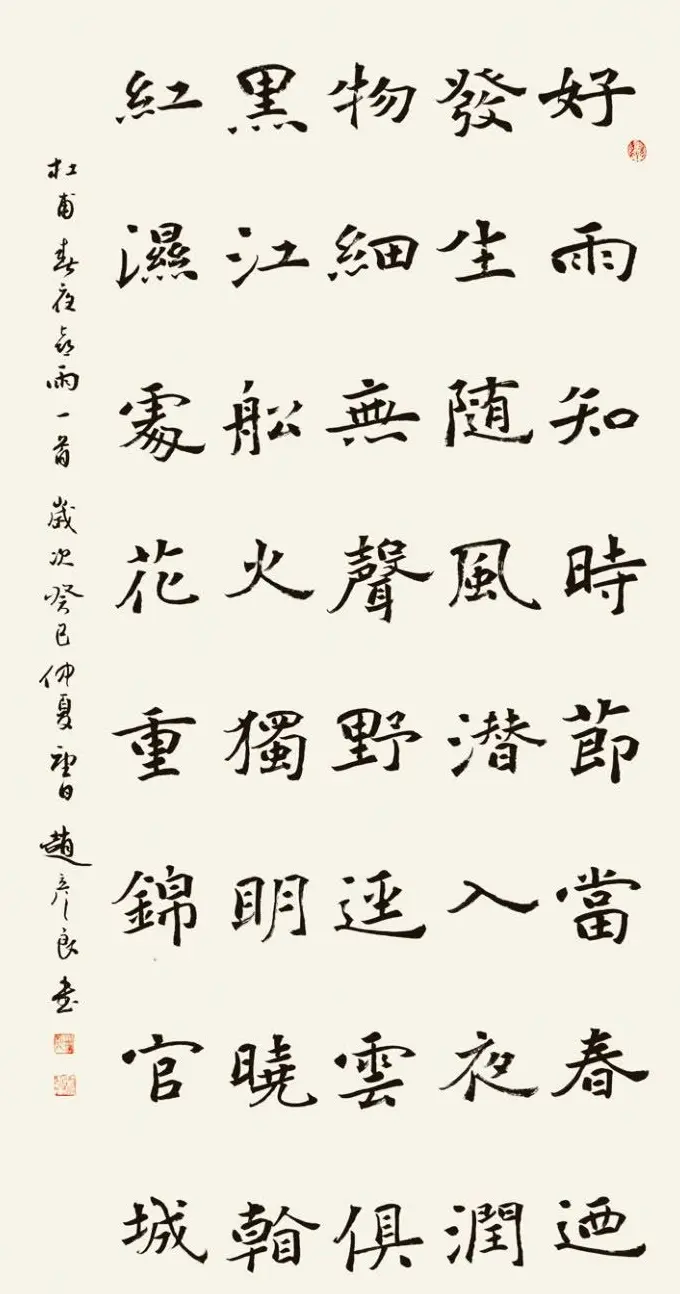 好雨知時節當春迺
發生随風潜入夜潤
物細無聲野逕雲俱
黑江船火獨明曉看
紅濕處花重錦官城
杜甫春夜喜雨一首 歲次癸巳仲夏 日 趙彦良書